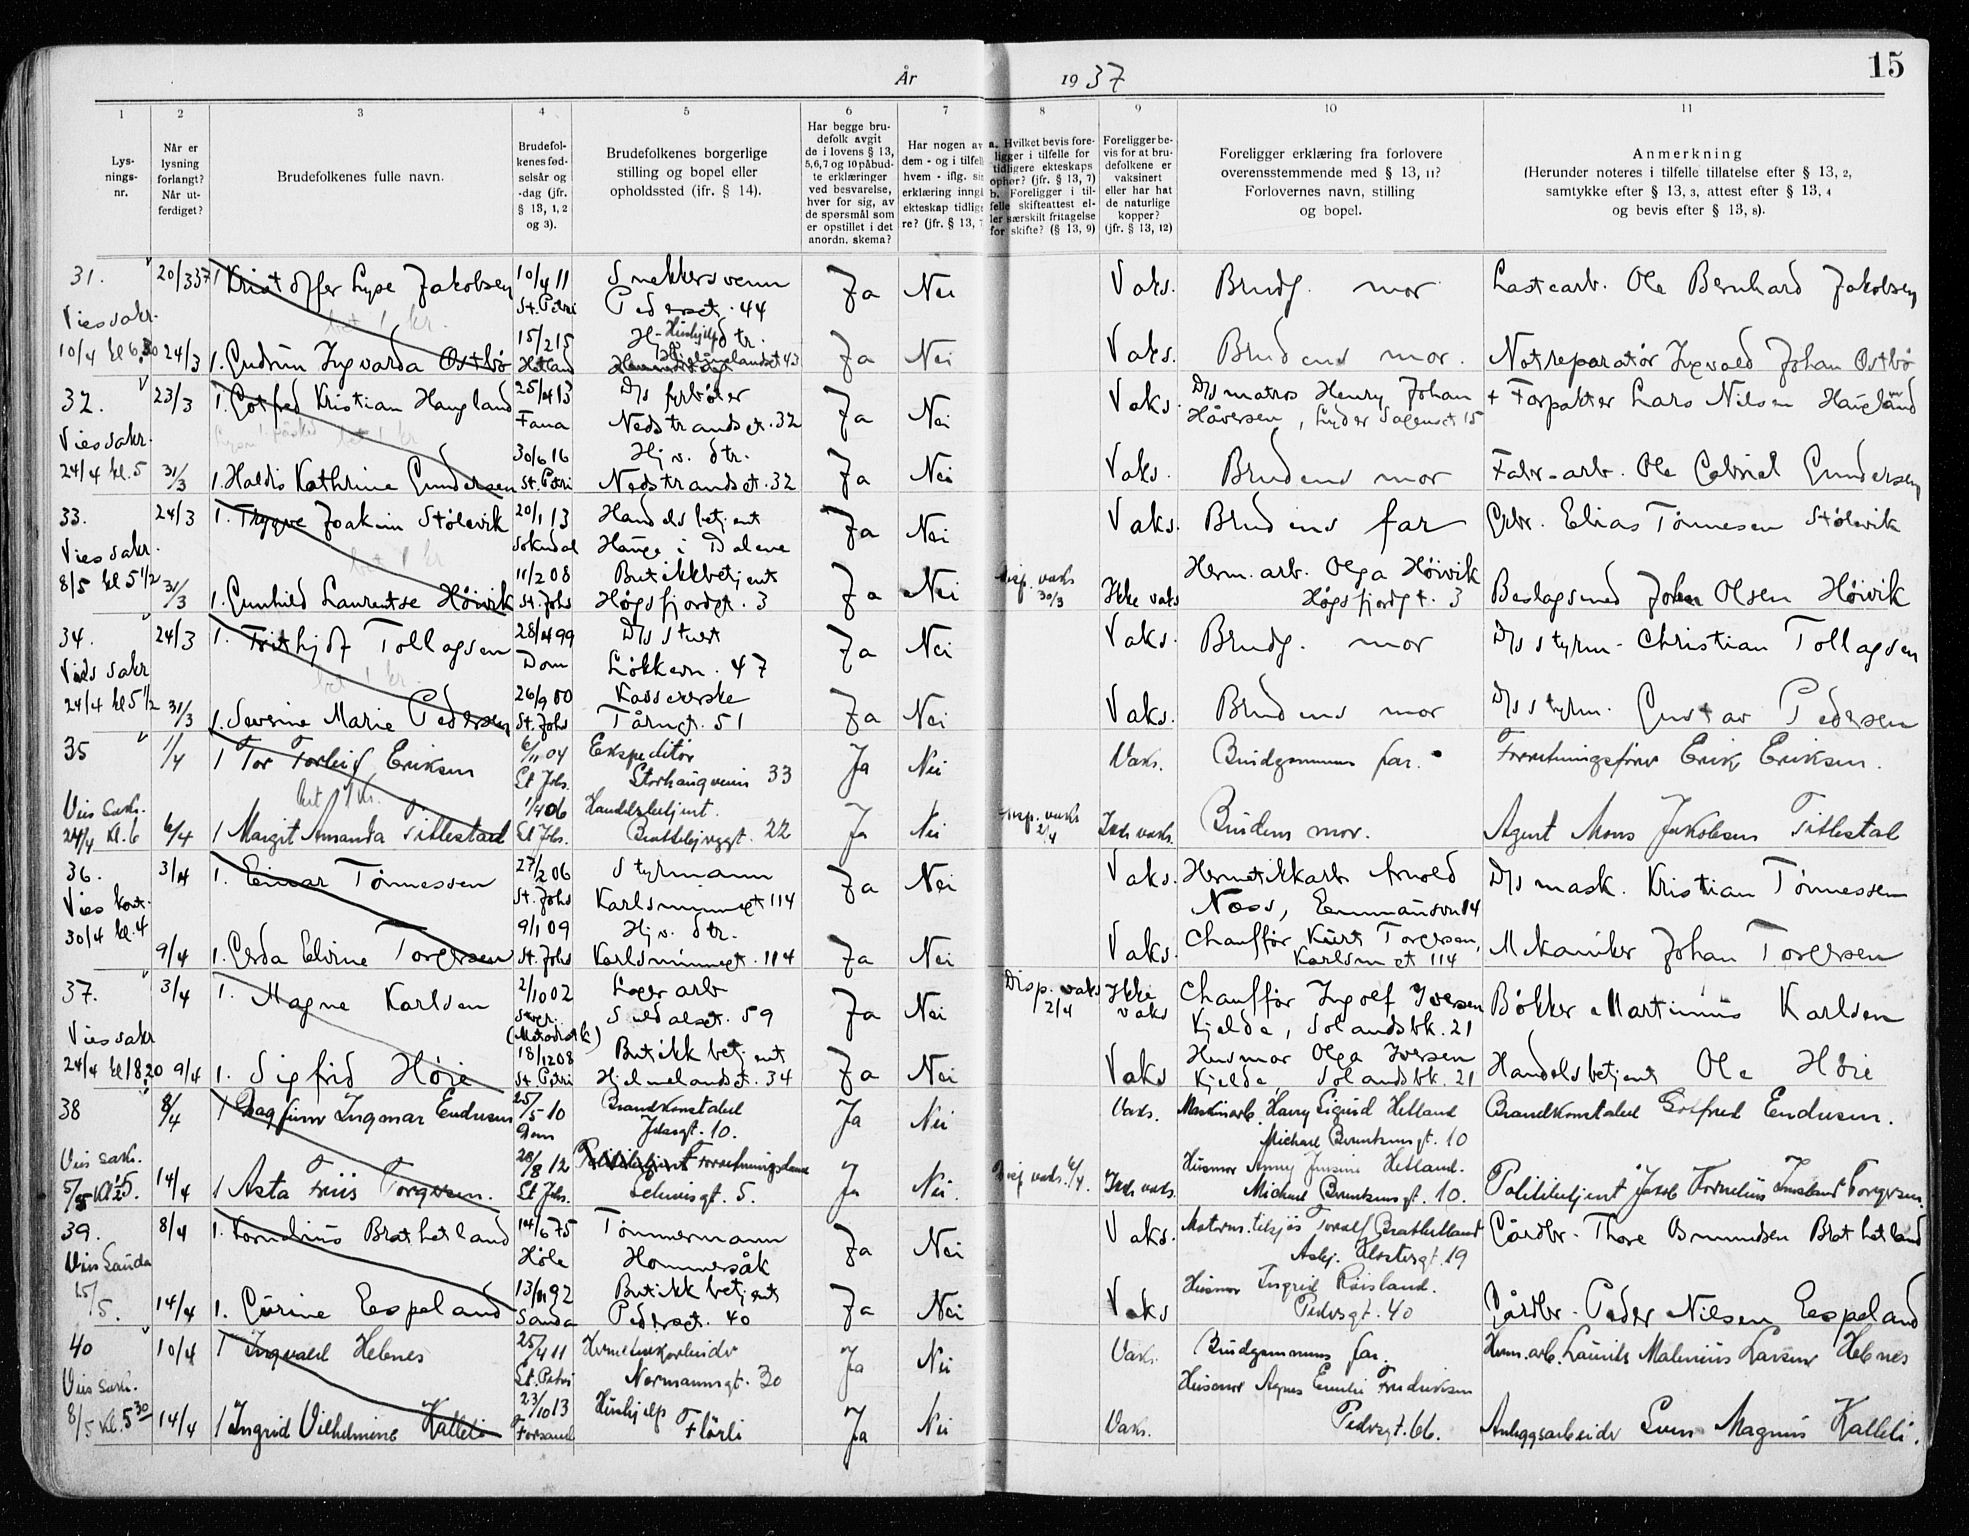 År 1937
15
1 2 3 4 5 6 7 8 9 10 11
Lys-
nings-
nr.
Når er
lysning
forlangt?
Når ut-
ferdiget?
Brudefolkenes fulle navn.
Brudefol-
kenes fød-
selsår og
-dag (jfr.
§ 13, 1, 2
og 3).
Brudefolkenes borgerlige
stilling og bopel eller
opholdssted (ifr. § 14).
Har begge bru-
defolk avgit
de i lovens § 13,
5,6,7 og 10 påbud-
te erklæringer
ved besvarelse,
hver for sig, av
de spørsmål som
er opstillet i det
anordn. skema?
Har nogen av
dem - og i tilfelle
hvem - iflg. si
erklæring inng
ekteskap tidlige
re? (jfr. § 13, 7
a. Hvilket bevis fore-
ligger i tilfelle for
tidligere ekteskaps
ophør? (jfr. § 13, 7)
b. Foreligger i til-
felle skifteattest el-
ler særskilt fritagelse
for skifte? (§ 13, 9)
Foreligger be-
vis for at bru-
defolkene er
vaksinert
eller har hat
de naturlige
kopper?
(jfr. § 13, 12)
Foreligger erklæring fra forlovere
overensstemmende med § 13, 11?
Forlovernes navn, stilling
og bopel.
Anmerkning
(Herunder noteres i tilfelle tillatelse efter § 13, 2,
samtykke efter § 13, 3, attest efter § 13, 4
og bevis efter § 13, 8).
31. 20/3 37 1 Kristoffer Lyse Jakobsen 10/4 11 Snekkersvenn Ja Nei Vaks. Brudg. mor Lastearb. Ole Bernhard Jakobsen
Vies sakr. bet 1 kr. St. Petri Pedersgt. 44
10/4 kl 6.30 24/3 1. Gudrun Ingvarda Østbø 15/2 15 Hetland Hushj. Hjelmelandsgt 43 Ja Nei Vaks. Brudens mor. Notreparatør Ingvald Johan Østbø
32. 23/3 1. Gotfred Kristian Haugland 25/4 13 D/s fyrbøter Ja Nei Vaks. D/s matros Henry Johan + Forpakter Lars Nilsen Haugland
Vies sakr. bet 1 kr Fana Nedstrandsgt. 32 Håversen, Lyder Sagensgt 15
24/4 kl. 5 31/3 1. Haldis Kathrine Gundersen 30/6 16 St. Petri Hj. v. dtr. Nedstrandsgt. 32 Ja Nei Vaks. Brudens mor Fabr.-arb. Ole Gabriel Gundersen
33. 24/3 1. Trygve Joakim Stølevik 20/1 13 Handelsbetjent Ja Nei Vaks. Brudens far Gbr. Elias Tønnesen Stølevik
Vies sakr. bet 1 kr Sokndal Hauge i Dalene
8/5 kl 5 1/2 31/3 1. Gunhild Laurentse Høivik 11/2 08 St. Johs Butikkbetjent Høgsfjordgt. 3 Ja Nei Disp. vaks 30/3 Ikke vaks Herm. arb. Olga Høivik Høgsfjordgt. 3 Beslagsmed John Olsen Høivik
34. 24/3 1. Frithjof Tollagsen 28/4 99 D/s stuert Ja Nei Vaks. Brudg. mor D/s styrm. Christian Tollagsen
Vies sakr bet 1 kr. Dom Løkkevn. 47
24/4 kl 5 1/2 31/3 1. Severine Marie Pedersen 26/9 00 St. Johs Kassererske Tårngt. 51 Ja Nei Vaks. Brudens mor D/s styrm. Gustav Pedersen
35 1/4 1 Tor Torleif Eriksen 6/11 04 Ekspeditør Ja Nei Vaks. Brudgommens far. Forretningsfører Erik Eriksen.
bet 1 kr. St Johs. Storhaugveien 33
Vies sakr. 24/4 Kl. 6 6/4 1 Margit Amanda Tittestad 1/4 06 St Johs. Handelsbetjent. 22 Ja Nei Disp. vaks 2/4 Ikke vaks. Brudens mor. Agent Mons Jakobsen Tittestad
36. 3/4 1. Einar Tønnessen 27/2 06 Styrmann Ja Nei Vaks. Hermetikkarb Arnold D/s mask. Kristian Tønnessen
Vies kont. St. Johs Karlsminnegt 114 Næss, Emmausvn 14
30/4 kl. 4 9/4 1. Gerda Elvine Torgersen 9/1 09 St. Johs Hj. v. dtr. Karlsminnegt. 114 Ja Nei Vaks. Chauffør Kurt Torgersen, Karlsm.gt 114 Mekaniker Johan Torgersen
37. 3/4 1. Magne Karlsen 2/10 02 Lagerarb Ja Nei Disp. vaks 2/4 Ikke vaks Chauffør Ingolf Iversen Bøkker Martinius Karlsen
Vies sakr Stvgr. (Metodistk) Suldalsgt. 59 Kjelde, Solandsbk. 21
24/4 kl 18.20 9/4 1. Sigfrid Høie 18/12 08 St Petri Butikkbetjent Hjelmelandsgt. 34 Ja Nei Vaks Husmor Olga Iversen Kjelde, Solandsbk. 21 Handelsbetjent Ole Høie
38 8/4 1 Dagfinn Ingmar Endresen 25/5 10 Dom Brandkonstabel 10. Ja Nei Vaks. Maskinarb. Harry Sigurd Hetland Michael Berentsensgt. 10 Brandkonstabel Gotfred Endresen.
Vies sakr. 5/5 Kl. 14/4 1 Asta Friis Torgersen. 28/8 12 St Johs. Forretningsdame 5. Ja Nei. Disp vaks. 6/4. Ikke vaks. Husmor Anny Jensine Hetland. Michael Berentsensgt. 10. Politibetjent Jakob Kornelius Torgersen.
39. 8/4 1. Kornelius Brathetland 14/6 75 Tømmermann Ja Nei Vaks. Toralf Brathetland Gårdbr. Thore Osmundsen Brathetland
Vies Sauda Høle Hommersåk Asbj. Klostergt. 19
15/5. 14/4 1. Gurine Espeland 13/11 92 Sauda Butikkbetjent Pedersgt. 40 Ja Nei Vaks Husmor Ingrid Røisland. Pedersgt. 40 Gårdbr. Peder Nilsen Espeland
40 10/4 1 Ingvald Hebnes 25/4 11 Hermetikkarbeider Ja Nei Vaks. Brudgommens far. Herm. arb. Laurits Malenius Larsen Hebnes
Vies sakr. St. Petri Normannsgt. 30
8/5 Kl. 5 30 14/4 1 Ingrid Vilhelmine Kalleli 23/10 13 Forsand Hushjelp Flørli Ja Nei Vaks. Husmor Agnes Emilie Fredriksen Pedersgt. 66. Anleggsarbeider Sven Magnus Kalleli.